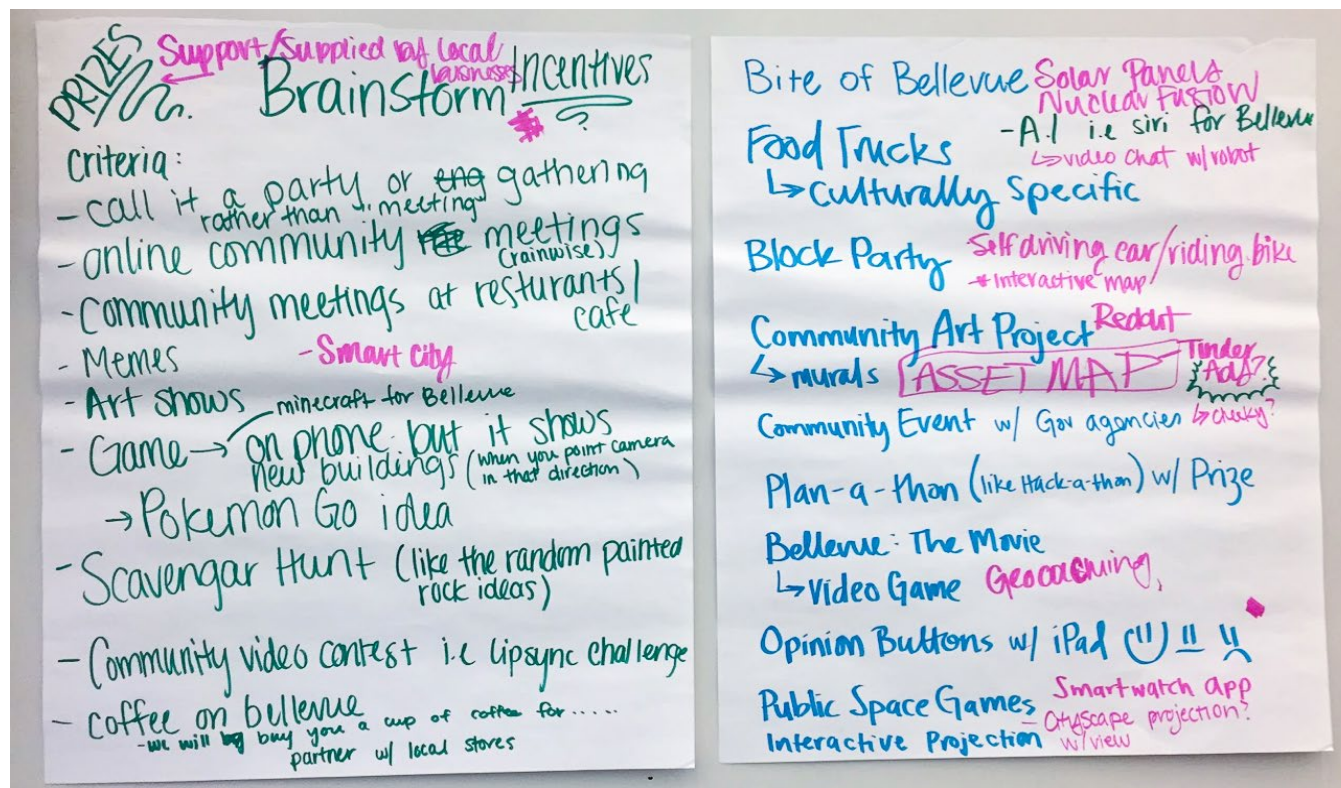 PRIZES
Support/Supplied by local
businesses
Brainstorm
Incentives
?
Criteria:
- call it a party or gathering
rather than "meeting"
- online community meetings
(rainwise))
- Community meetings at resturants/
cafe
- Memes
- Smart City
- Art shows
minecraft for Bellevue
- Game → on phone but it shows
new buildings (when you point camera
in that direction)
→ Pokemon Go idea
- Scavengar Hunt (like the random painted
rock ideas)
- Community video contest i.e Lipsync challenge
- coffee on bellevue
- we will buy you a cup of coffee for.....
partner w/ local stores
Bite of Bellevue
Solar Panels
Nuclear Fusion
- A.I i.e siri for Bellevue
↳ video chat w/robot
Food Trucks
↳ Culturally Specific
Block Party
Self driving car/riding bike
* Interactive map
Community Art Project
Reddit
↳ murals
ASSET MAP
Tinder
Ads?
↳ cheeky?
Community Event w/ Gov agencies
Plan-a-thon (like Hack-a-thon) w/ Prize
Bellevue: The Movie
↳ Video Game
Geocaching,
Opinion Buttons w/ iPad
Public Space Games
Smartwatch app
- Cityscape projection?
w/view
Interactive Projection